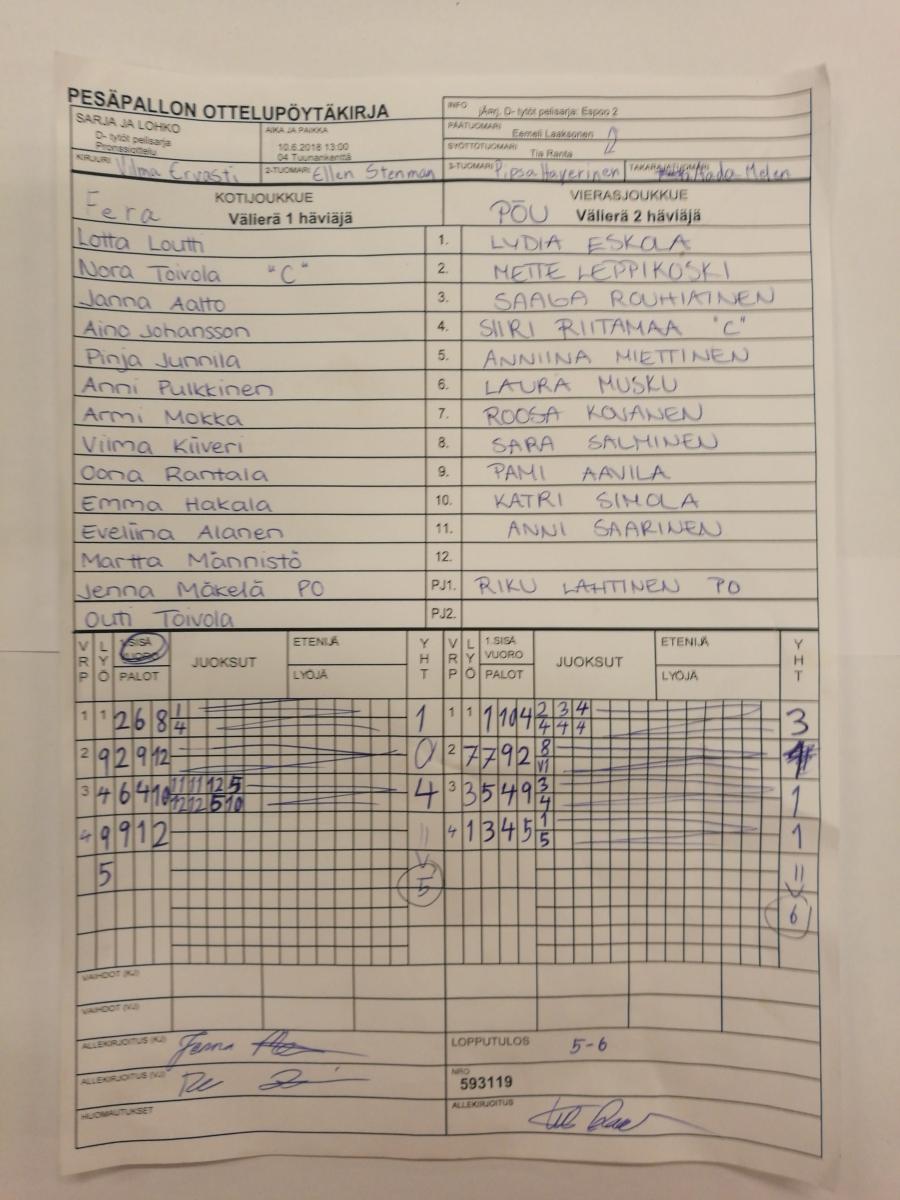 PESÄPALLON OTTELUPÖYTÄKIRJA
SARJA JA LOHKO
D- tytöt pelisarja
Pronssiottelu
AIKA JA PAIKKA
10.6.2018 13:00
04 Tuunankenttä
INFO jÄarj. D- tytöt pelisarja: Espoo 2
PÄÄTUOMARI Eemeli Laaksonen
SYÖTTÖTUOMARI Tia Ranta
KIRJURI Vilma Ervasti 2-TUOMARI Ellen Stenman 3-TUOMARI Pipsa Hayerinen TAKARAJATUOMARI Aada Melen
Fera KOTIJOUKKUE
Välierä 1 häviäjä
PÖU VIERASJOUKKUE
Välierä 2 häviäjä
Lotta Loutti 1. LYDIA ESKOLA
Nora Toivola "C" 2. METTE LEPPIKOSKI
Janna Aalto 3. SAAGA ROUHIAINEN
Aino Johansson 4. SIIRI RIITAMAA "C"
Pinja Junnila 5. ANNIINA MIETTINEN
Anni Pulkkinen 6. LAURA MUSKU
Armi Mokka 7. ROOSA KOVANEN
Vilma Kiiveri 8. SARA SALMINEN
Oona Rantala 9. PAMI AAVILA
Emma Hakala 10. KATRI SIMOLA
Eveliina Alanen 11. ANNI SAARINEN
Martta Männistö 12.
Jenna Mäkelä PO PJ1. RIKU LAHTINEN PO
Outi Toivola PJ2.
VRP LYÖ 1.SISÄ VUORO PALOT JUOKSUT ETENIJÄ LYÖJÄ YHT VRP LYÖ 1.SISÄ VUORO PALOT JUOKSUT ETENIJÄ LYÖJÄ YHT
1 1 2 6 8 1/4 1 1 1 1 10 4 2/4 3/4 4/4 3
2 9 2 9 12 0 2 7 7 9 2 8/VI 1
3 4 6 4 10 11/12 11/12 12/5 5/10 4 3 3 5 4 9 3/4 1
4 9 9 1 2 = 4 1 3 4 5 1/5 1
5 5 =
6
VAIHDOT (KJ)
VAIHDOT (VJ)
ALLEKIRJOITUS (KJ) Jenna
LOPPUTULOS 5-6
ALLEKIRJOITUS (VJ)
NRO
593119
HUOMAUTUKSET
ALLEKIRJOITUS